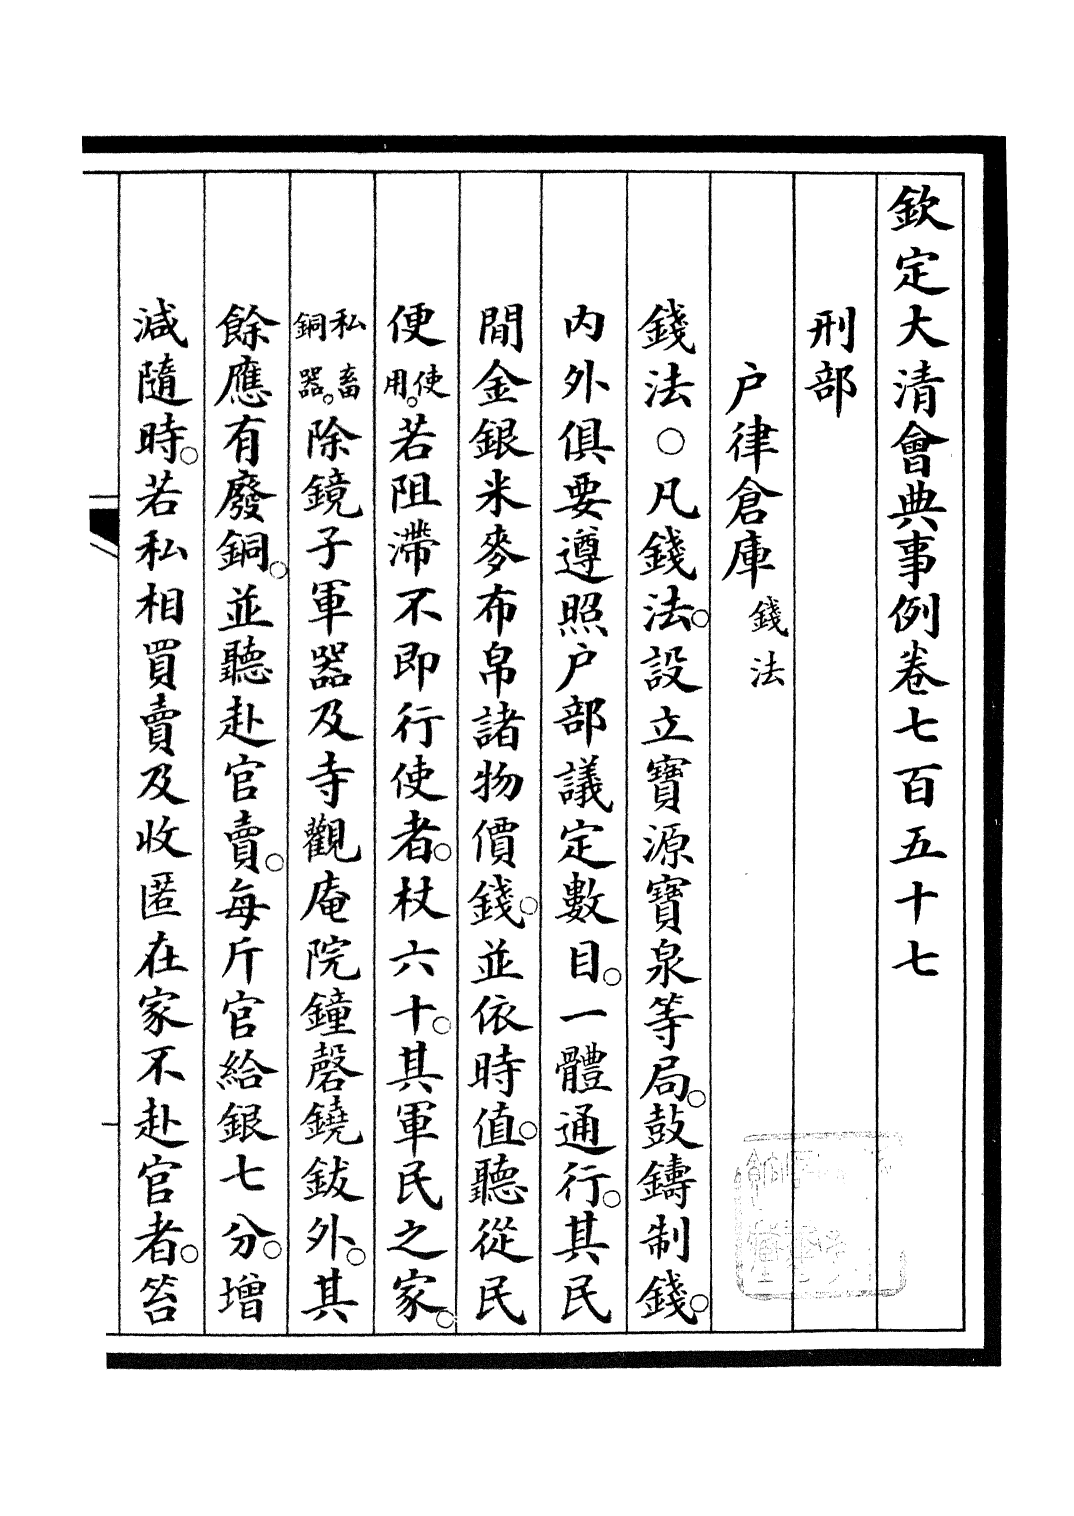 欽定大清會典事例卷七百五十七
刑部
户律倉庫錢法
錢法○凡錢法。設立寶源寶泉等局。鼓鑄制錢。
内外俱要遵照户部議定數目。一體通行。其民
間金銀米麥布帛諸物價錢。並依時值。聽從民
便使用。若阻滯不即行使者。杖六十。其軍民之家。
私畜銅器。除鏡子軍器及寺觀庵院鐘磬鐃鈸外。其
餘應有廢銅。並聽赴官賣。每斤官給銀七分。增
減隨時。若私相買賣及收匿在家不赴官者。笞